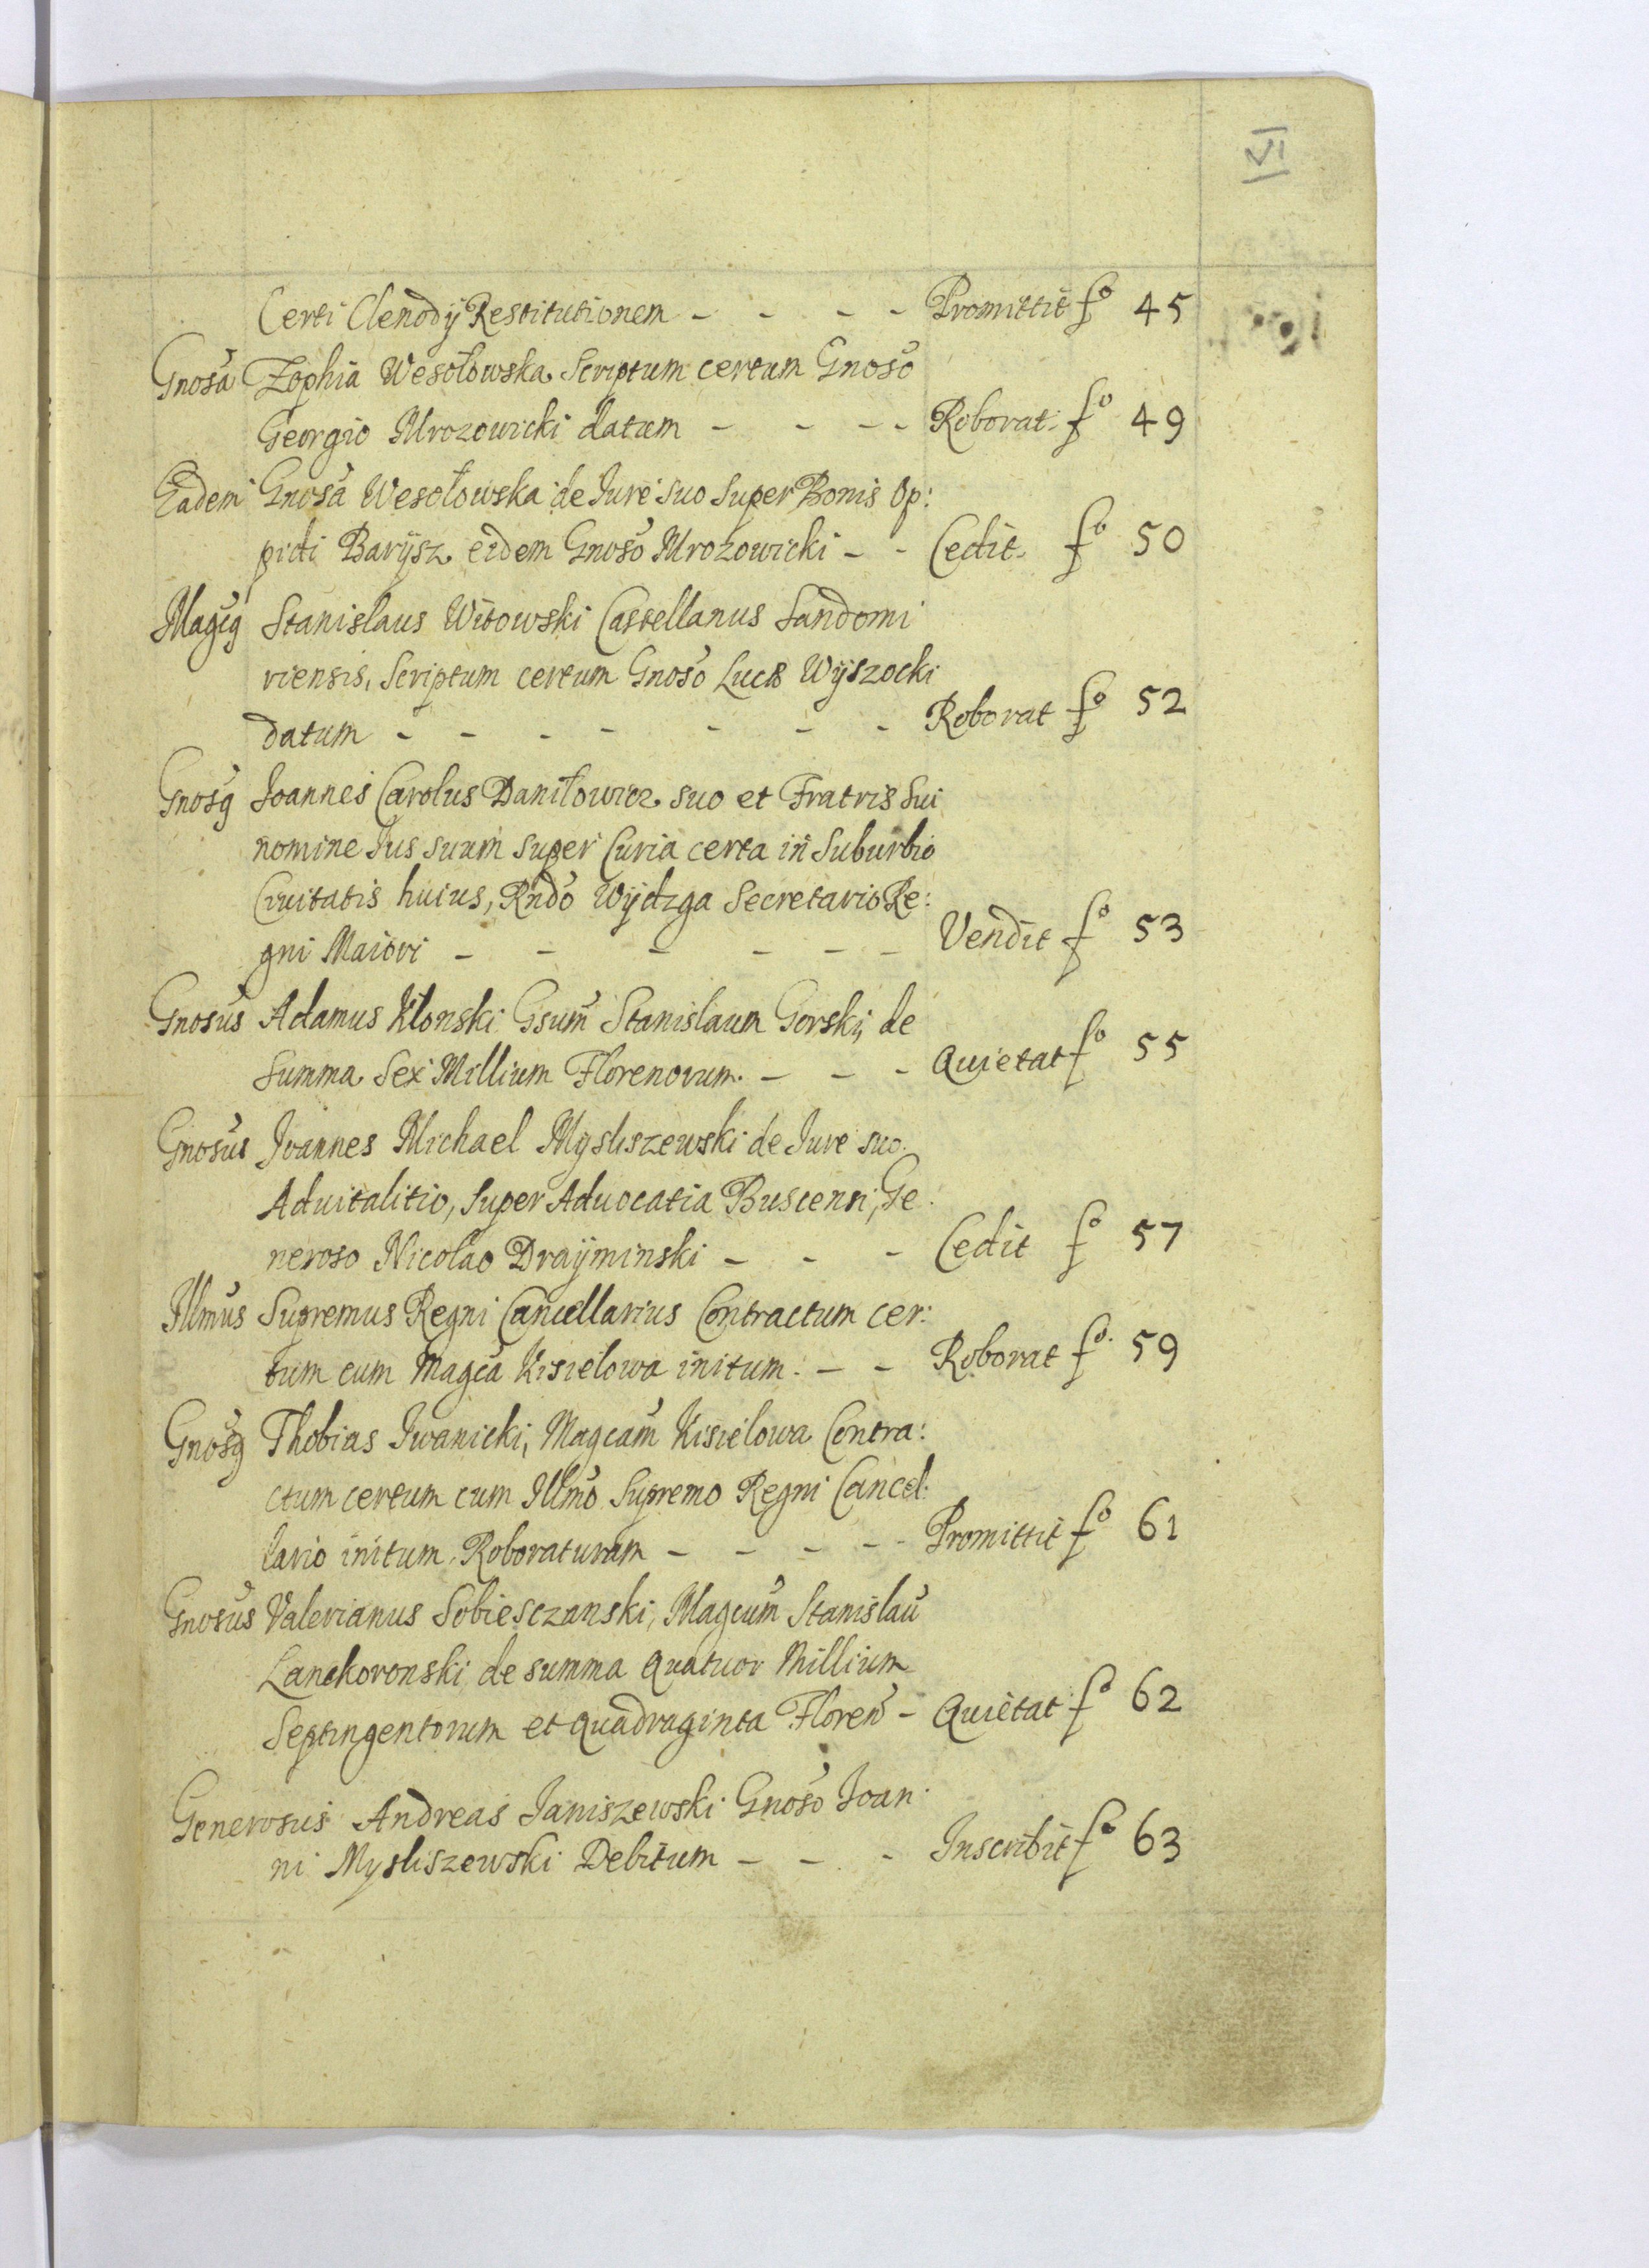 VI
Certi Clenodÿ Restitutionem - - - - Promittit fo 45
Gnosa Zophia Wesołowska Scriptum certum Gnoso
Georgio Mrozowicki datum - - - - Roborat fo 49
Eadem Gnosa Wesołowska de Jure suo super Bonis Op:
pidi Barÿsz eidem Gnoso Mrozowicki - - Cedit fo 50
Magcꝯ Stanislaus Witowski Castellanus Sandomi
riensis, Scriptum certum Gnoso Lucæ Wÿszocki
datum - - - - - - - Roborat fo 52
Gnosꝯ Joannes Carolus Daniłowicz suo et Fratris Sui
nomine Jus suum super Curia certa in Suburbio
Civitatis huius, Rndo Wÿdzga Secretario Re:
gni Maiori - - - - - - Vendit fo 53
Gnosus Adamus Klonski Gsum Stanislaum Gorski, de
Summa Sex Millium Florenorum. - - - Quietat fo 55
Gnosus Joannes Michael Mysliszewski de Jure suo
Aduitalitio, super Aduocatia Buscensi, Ge
neroso Nicolao Draÿminski - - - Cedit fo 57
Illmus Supremus Regni Cancellarius Contractum cer:
tum cum Magca Kisielowa initum. - - Roborat fo 59
Gnosꝯ Thobias Iwanicki, Magcam Kisielowa Contra:
ctum certum cum Illmo Supremo Regni Cancel:
lario initum Roboraturam - - - - - Promittit fo 61
Gnosus Valerianus Sobiesczanski, Magcum Stanislau
Lanckoronski de summa Quatuor Millium
Septingentorum et Quadraginta Floren - Quietat fo 62
Generosus Andreas Janiszewski Gnoso Joan
ni Mysliszewski Debitum - - - Inscribit fo 63